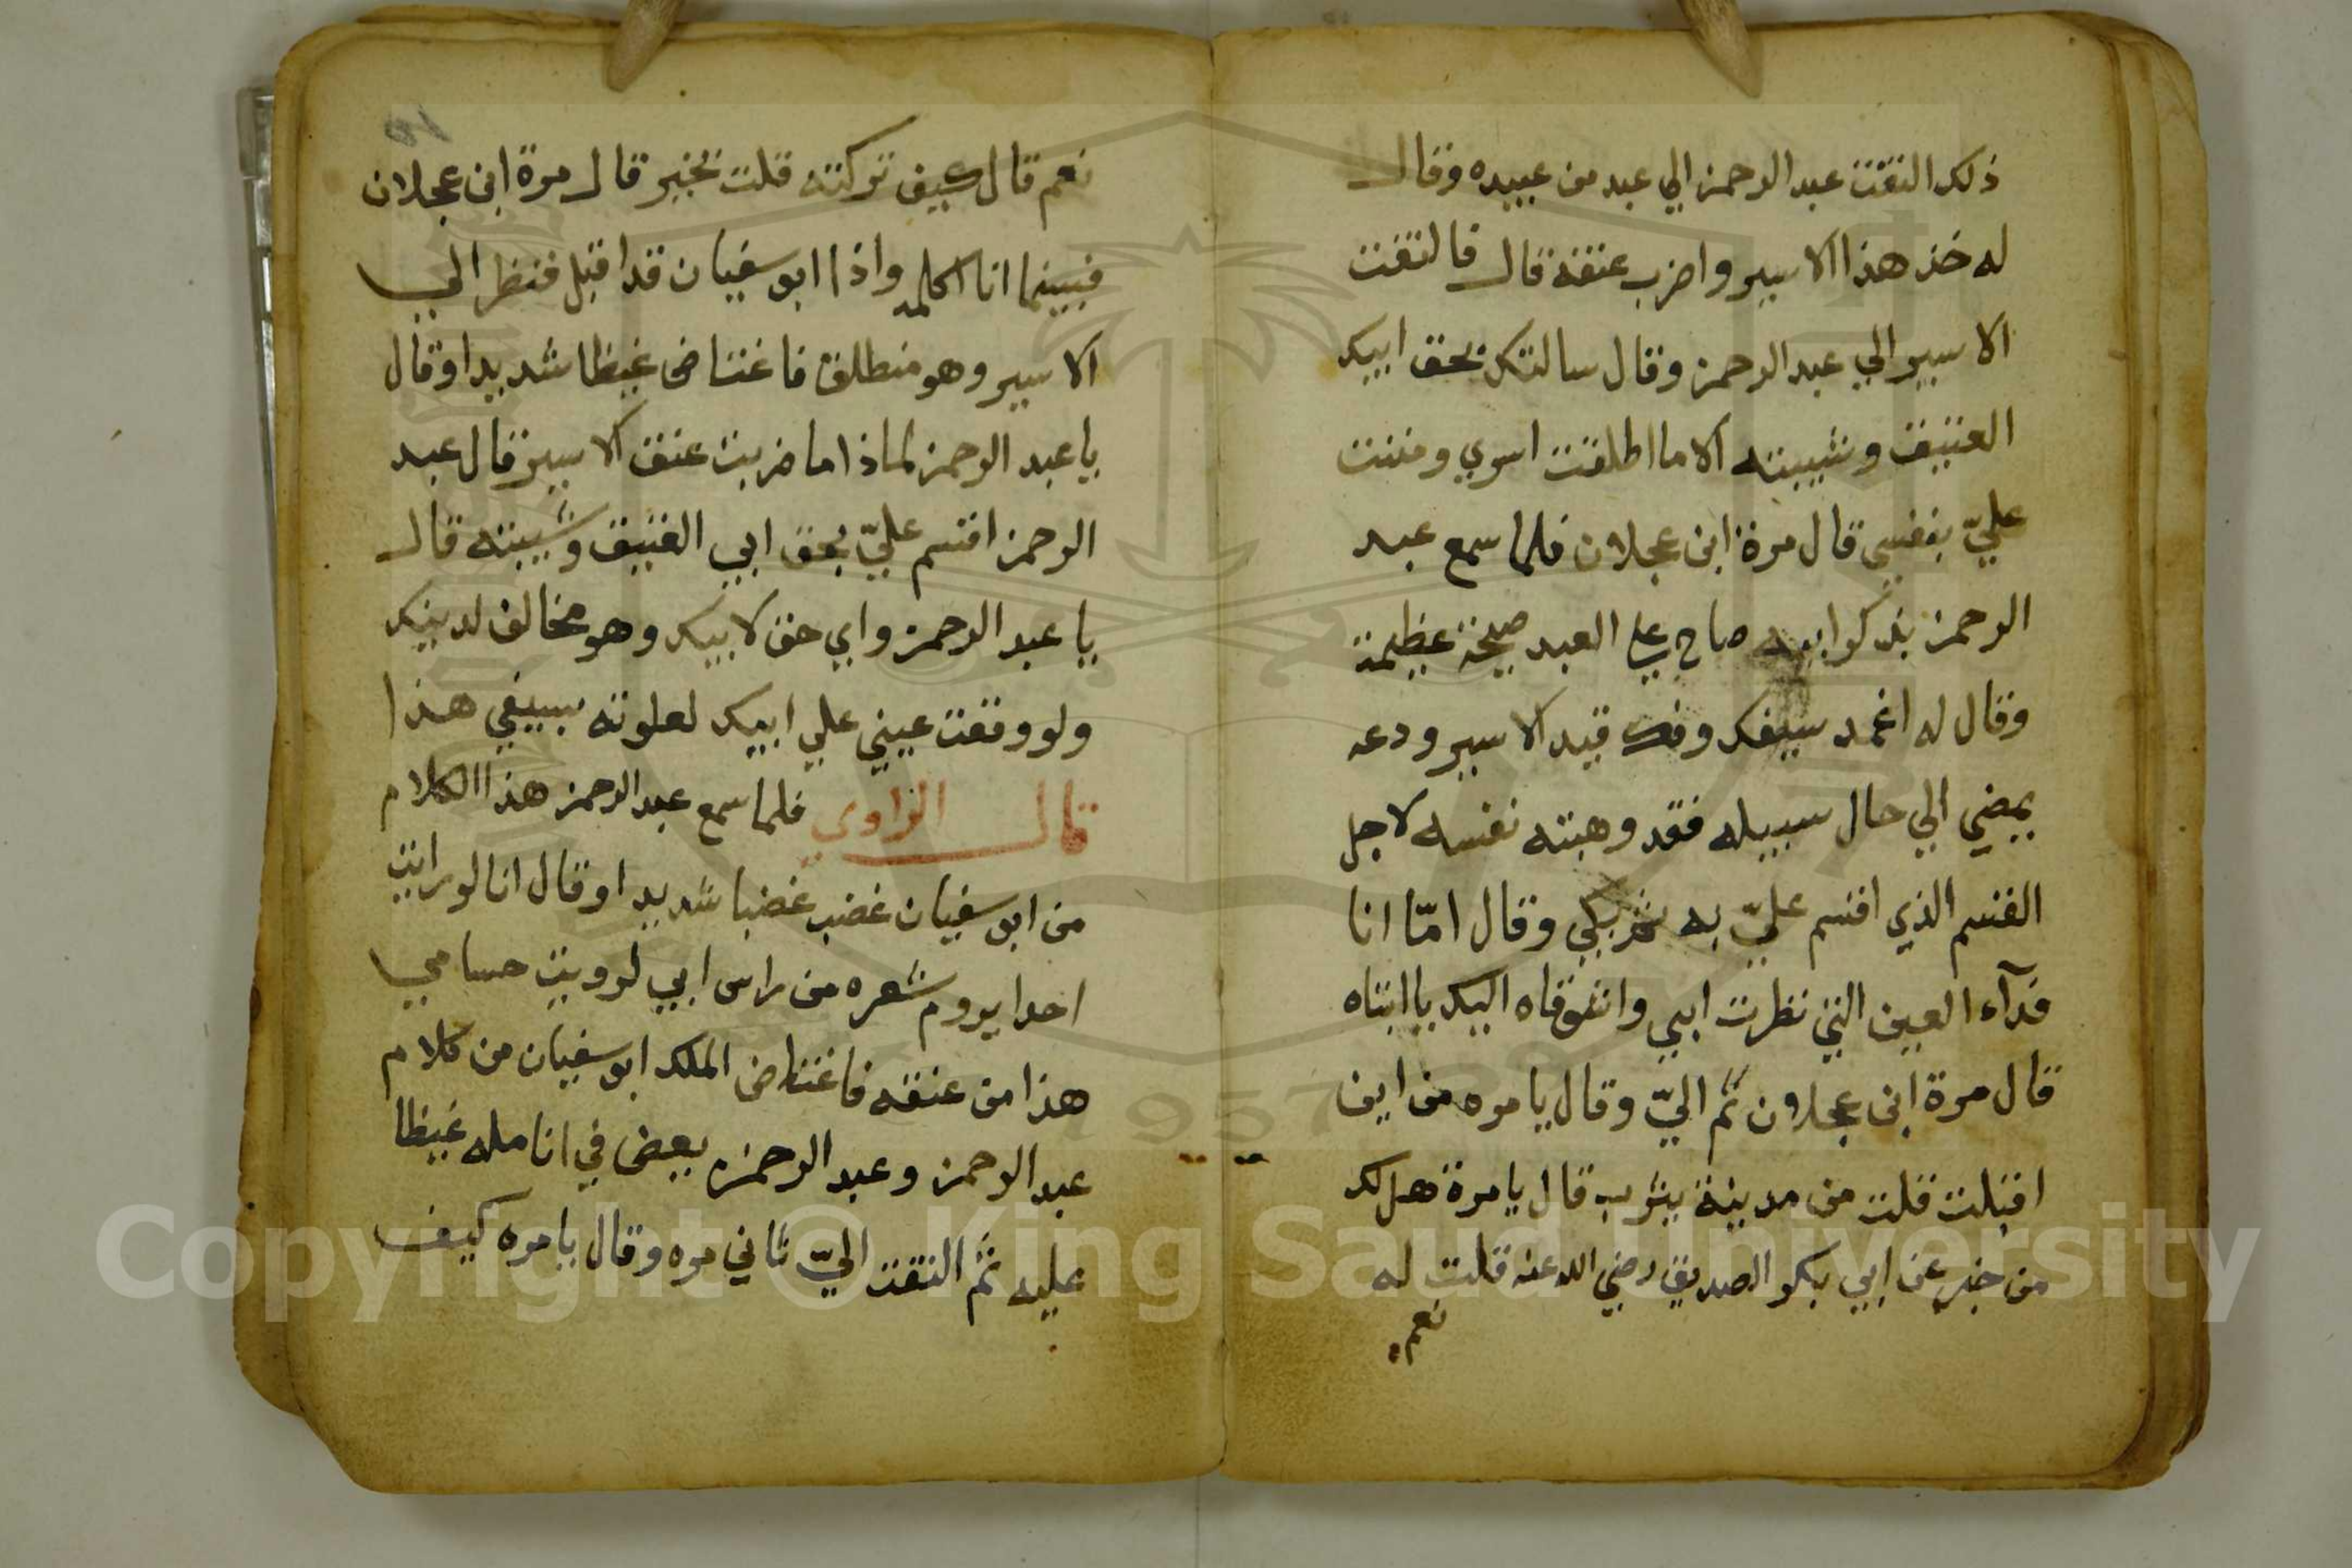 ذلك التفت عبد الرحمن الي عبد من عبيده وقال
له خذ هذا الاسير واضرب عنقه قال فالتفت
الاسير الي عبد الرحمن وقال سالتك بحق ابيك
العتيق وشيبته الا ما اطلقت اسري ومننت
عليّ بنفسي قال مرة ابن عجلان فلما سمع عبد
الرحمن بذكر ابيه صاح علي العبد صيحة عظيمة
وقال له اغمد سيفك وفك قيد الاسير ودعه
يمضي الي حال سبيله فقد وهبته نفسه لاجل
القسم الذي اقسم عليّ به ثم بكي وقال امّا انا
فدآء العين التي نظرت ابي واشوقاه اليك يا ابتاه
قال مرة ابن عجلان ثم اليّ وقال يا مره من اين
اقبلت قلت من مدينة يثرب قال يا مرة هل لك
من خبر عن ابي بكر الصديق رضي الله عنه قلت له
نعم
١٥
نعم قال كيف تركته قلت بخير قال مرة ابن عجلان
فبينما انا اكلمه واذا ابو سفيان قد اقبل فنظر الي
الاسير وهو منطلق فاغتاض غيظا شديدا وقال
يا عبد الرحمن لماذا ما ضربت عنق الاسير قال عبد
الرحمن اقسم عليّ بحق ابي العتيق وشيبته قال
يا عبد الرحمن واي حق لابيك وهو مخالف لدينك
ولو وقعت عيني علي ابيك لعلوته بسيفي هذا
قال الراوي فلما سمع عبد الرحمن هذا الكلام
من ابو سفيان غضب غضبا شديدا وقال انا لو رايت
احدا يروم شعره من راس ابي لرويت حسامي
هذا من عنقه فاغتاض الملك ابو سفيان من كلام
عبد الرحمن وعبد الرحمن يعض في انامله غيظا
عليه ثم التفت اليّ ثاني مره وقال يا مره كيف
Copyright © King Saud University
1957